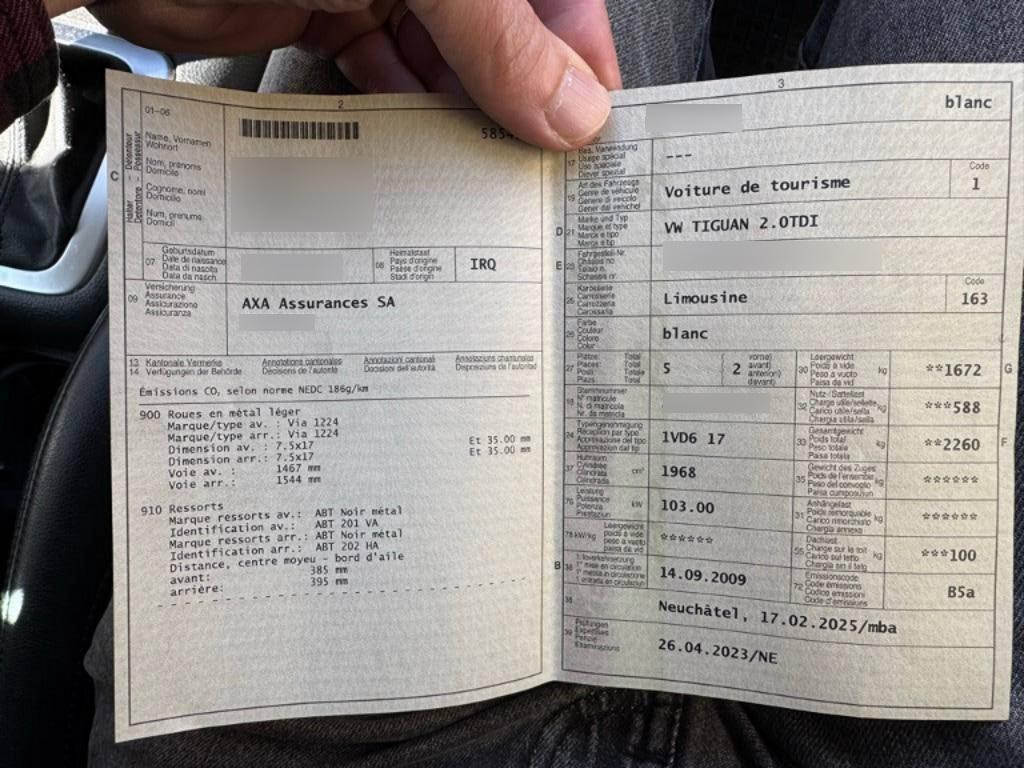 2
01-06
5854
C
Halter - Détenteur
Detentore - Possessur
Name, Vornamen
Wohnort
Nom, prénoms
Domicile
Cognome, nomi
Domicilio
Num, prenums
Domicil
07
Geburtsdatum
Date de naissance
Data di nascita
Data da nasch.
08
Heimatstaat
Pays d'origine
Paese d'origine
Stadi d'origin
IRQ
09
Versicherung
Assurance
Assicurazione
Assicuranza
AXA Assurances SA
13 Kantonale Vermerke
14 Verfügungen der Behörde
Annotations cantonales
Décisions de l'autorité
Annotazioni cantonali
Decisioni dell'autorità
Annotaziuns chantunalas
Disposiziuns da l'autoritad
Émissions CO, selon norme NEDC 186g/km
900 Roues en métal léger
Marque/type av. : Via 1224
Marque/type arr.: Via 1224
Dimension av. : 7.5x17 Et 35.00 mm
Dimension arr.: 7.5x17 Et 35.00 mm
Voie av. : 1467 mm
Voie arr.: 1544 mm
910 Ressorts
Marque ressorts av.: ABT Noir métal
Identification av.: ABT 201 VA
Marque ressorts arr.: ABT Noir métal
Identification arr.: ABT 202 HA
Distance, centre moyeu - bord d'aile
avant: 385 mm
arrière: 395 mm
3
blanc
17
Bes. Verwendung
Usage spécial
Uso speciale
Diever spezial
---
19
Art des Fahrzeugs
Genre de véhicule
Genere di veicolo
Gener dal vehichel
Voiture de tourisme
Code
1
D
21
Marke und Typ
Marque et type
Marca e tipo
Marca e tip
VW TIGUAN 2.0TDI
E
23
Fahrgestell-Nr.
Châssis no
Telaio n.
Schassis nr.
25
Karosserie
Carrosserie
Carrozzeria
Carossaria
Limousine
Code
163
26
Farbe
Couleur
Colore
Colur
blanc
27
Plätze: Total
Places: Total
Posti: Totale
Plazs: Total
5
2
vorne)
avant)
anteriori)
davant)
30
Leergewicht
Poids à vide
Peso a vuoto
Paisa da vid
kg
**1672
G
18
Stammnummer
N° matricule
N. di matricola
Nr. da matricla
32
Nutz-/Sattellast
Charge utile/sellette
Carico utile/sella
Chargia utila/sella
kg
***588
24
Typengenehmigung
Réception par type
Approvazione del tipo
Approvaziun dal tip
1VD6 17
33
Gesamtgewicht
Poids total
Peso totale
Paisa totala
kg
**2260
F
37
Hubraum
Cylindrée
Cilindrata
Cilindrada
cm³
1968
35
Gewicht des Zuges
Poids de l'ensemble
Peso del convoglio
Paisa cumposiziun
kg
******
76
Leistung
Puissance
Potenza
Prestaziun
kW
103.00
31
Anhängelast
Poids remorquable
Carico rimorchiato
Chargia annexa
kg
******
78 kW/kg
Leergewicht
poids à vide
peso a vuoto
paisa da vid
******
55
Dachlast
Charge sur le toit
Carico sul tetto
Chargia sin il tetg
kg
***100
B
36
1. Inverkehrsetzung
1re mise en circulation
1a messa in circolazione
1. entrada en circulaziun
14.09.2009
72
Emissionscode
Code émissions
Codice emissioni
Code d'emissiuns
B5a
38
Neuchâtel, 17.02.2025/mba
39
Prüfungen
Expertises
Perizie
Examinaziuns
26.04.2023/NE